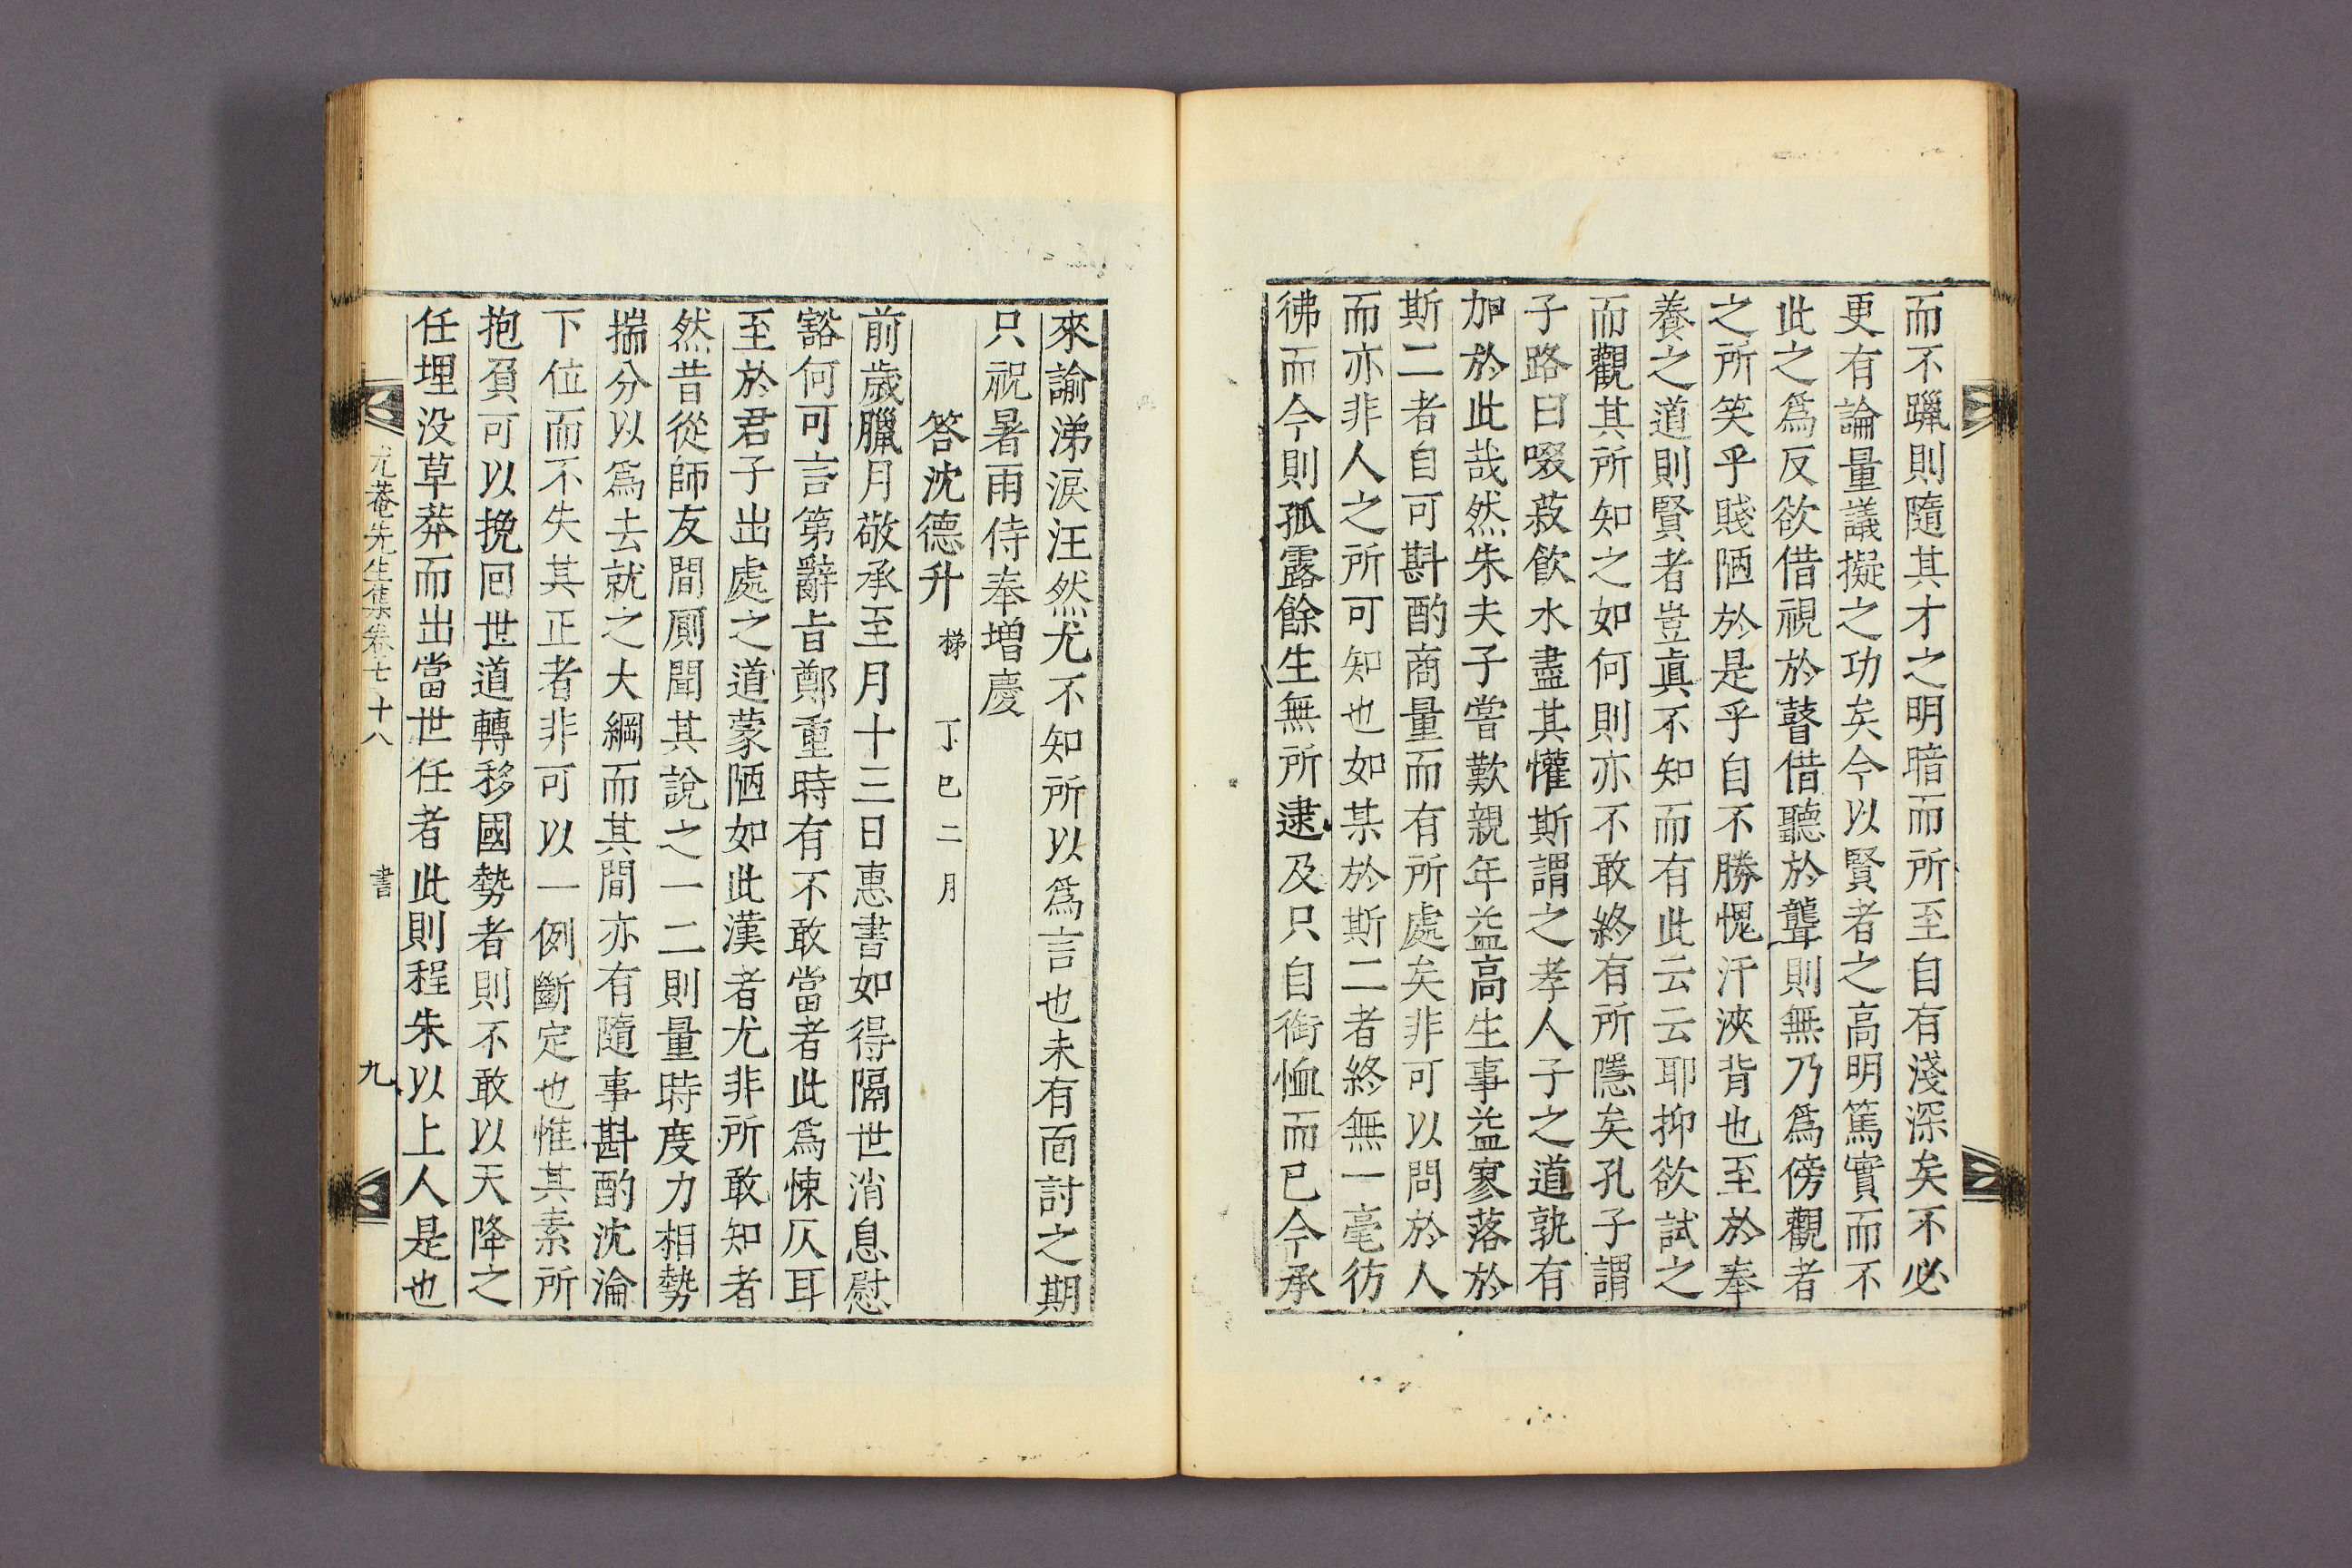 而不躐則隨其才之明暗而所至自有淺深矣不必
更有論量議擬之功矣今以賢者之高明篤實而不
此之爲反欲借視於瞽借聽於聾則無乃爲傍觀者
之所笑乎賤陋於是乎自不勝愧汗浹背也至於奉
養之道則賢者豈眞不知而有此云云耶抑欲試之
而觀其所知之如何則亦不敢終有所隱矣孔子謂
子路曰啜菽飮水盡其懽斯謂之孝人子之道孰有
加於此哉然朱夫子嘗歎親年益高生事益寥落於
斯二者自可斟酌商量而有所處矣非可以問於人
而亦非人之所可知也如某於斯二者終無一毫彷
彿而今則孤露餘生無所逮及只自銜恤而已今承
來諭涕淚汪然尤不知所以爲言也未有面討之期
只祝暑雨侍奉增慶
答沈德升 梯 丁巳二月
前歲臘月敬承至月十三日惠書如得隔世消息慰
豁何可言第辭旨鄭重時有不敢當者此爲悚仄耳
至於君子出處之道蒙陋如此漢者尤非所敢知者
然昔從師友間厠聞其說之一二則量時度力相勢
揣分以爲去就之大綱而其間亦有隨事斟酌沈淪
下位而不失其正者非可以一例斷定也惟其素所
抱負可以挽回世道轉移國勢者則不敢以天降之
任埋没草莽而出當世任者此則程朱以上人是也
尤菴先生集卷七十八 書 九